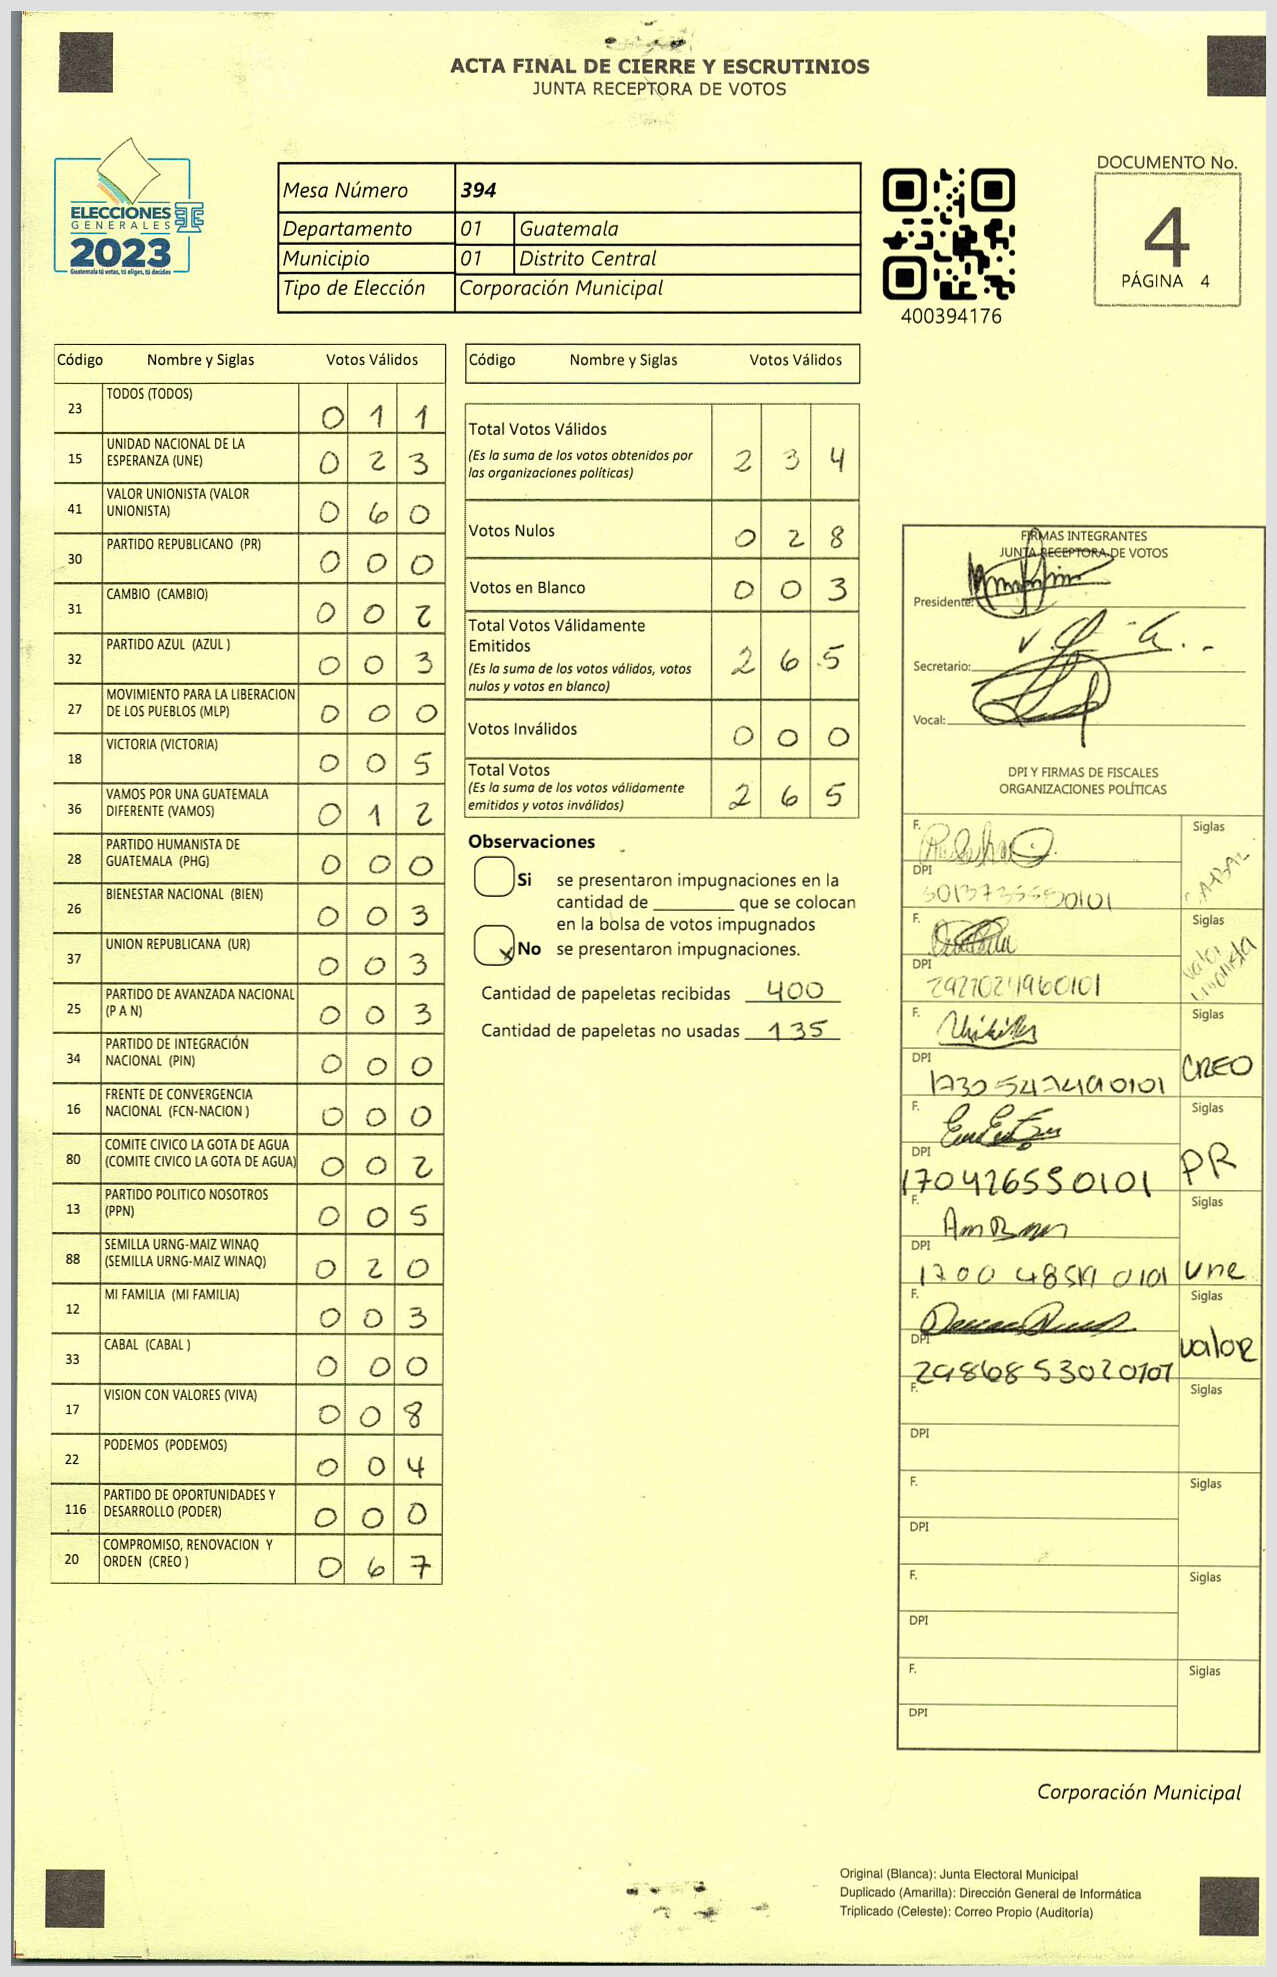 ACTA FINAL DE CIERRE Y ESCRUTINIOS
JUNTA RECEPTORA DE VOTOS
ELECCIONES
GENERALES
2023
Guatemala tú votas, tú eliges, tú decides
Mesa Número 394
Departamento 01 Guatemala
Municipio 01 Distrito Central
Tipo de Elección Corporación Municipal
400394176
DOCUMENTO No.
4
PÁGINA 4
Código Nombre y Siglas Votos Válidos
23 TODOS (TODOS) 0 1 1
15 UNIDAD NACIONAL DE LA ESPERANZA (UNE) 0 2 3
41 VALOR UNIONISTA (VALOR UNIONISTA) 0 6 0
30 PARTIDO REPUBLICANO (PR) 0 0 0
31 CAMBIO (CAMBIO) 0 0 2
32 PARTIDO AZUL (AZUL ) 0 0 3
27 MOVIMIENTO PARA LA LIBERACION DE LOS PUEBLOS (MLP) 0 0 0
18 VICTORIA (VICTORIA) 0 0 5
36 VAMOS POR UNA GUATEMALA DIFERENTE (VAMOS) 0 1 2
28 PARTIDO HUMANISTA DE GUATEMALA (PHG) 0 0 0
26 BIENESTAR NACIONAL (BIEN) 0 0 3
37 UNION REPUBLICANA (UR) 0 0 3
25 PARTIDO DE AVANZADA NACIONAL (P A N) 0 0 3
34 PARTIDO DE INTEGRACIÓN NACIONAL (PIN) 0 0 0
16 FRENTE DE CONVERGENCIA NACIONAL (FCN-NACION ) 0 0 0
80 COMITE CIVICO LA GOTA DE AGUA (COMITE CIVICO LA GOTA DE AGUA) 0 0 2
13 PARTIDO POLITICO NOSOTROS (PPN) 0 0 5
88 SEMILLA URNG-MAIZ WINAQ (SEMILLA URNG-MAIZ WINAQ) 0 2 0
12 MI FAMILIA (MI FAMILIA) 0 0 3
33 CABAL (CABAL ) 0 0 0
17 VISION CON VALORES (VIVA) 0 0 8
22 PODEMOS (PODEMOS) 0 0 4
116 PARTIDO DE OPORTUNIDADES Y DESARROLLO (PODER) 0 0 0
20 COMPROMISO, RENOVACION Y ORDEN (CREO ) 0 6 7
Código Nombre y Siglas Votos Válidos
Total Votos Válidos 2 3 4
(Es la suma de los votos obtenidos por
las organizaciones politicas)
Votos Nulos 0 2 8
Votos en Blanco 0 0 3
Total Votos Válidamente
Emitidos 2 6 5
(Es la suma de los votos válidos, votos
nulos y votos en blanco)
Votos Inválidos 0 0 0
Total Votos 2 6 5
(Es la suma de los votos válidamente
emitidos y votos inválidos)
Observaciones
Si se presentaron impugnaciones en la
cantidad de ________ que se colocan
en la bolsa de votos impugnados
x No se presentaron impugnaciones.
Cantidad de papeletas recibidas 400
Cantidad de papeletas no usadas 135
FIRMAS INTEGRANTES
JUNTA RECEPTORA DE VOTOS
Presidente:
Secretario:
Vocal:
DPI Y FIRMAS DE FISCALES
ORGANIZACIONES POLÍTICAS
F. Siglas
DPI CABAL
F. Siglas
DPI Valor Unionista
F. Siglas
DPI CREO
F. Siglas
DPI 170426550101 PR
F. Siglas
DPI une
F. Siglas
DPI 2986853020101 valor
F. Siglas
DPI
F. Siglas
DPI
F. Siglas
DPI
F. Siglas
DPI
Corporación Municipal
Original (Blanca): Junta Electoral Municipal
Duplicado (Amarilla): Dirección General de Informática
Triplicado (Celeste): Correo Propio (Auditoría)